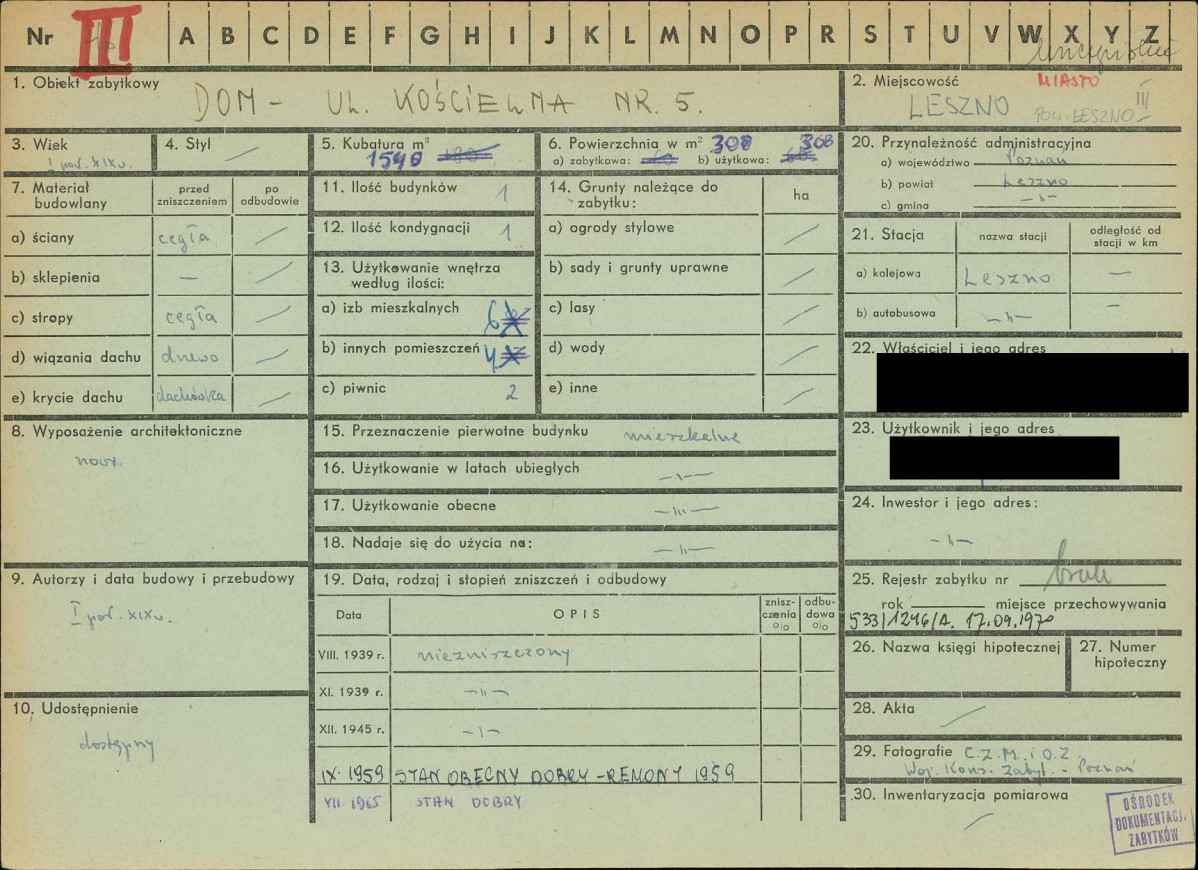 Nr III A B C D E F G H I J K L M N O P R S T U V W X Y Z
1. Obiekt zabytkowy
DOM - UL. KOŚCIELNA NR. 5.
2. Miejscowość MIASTO
LESZNO POW. LESZNO III
3. Wiek
I poł. XIX w.
4. Styl
5. Kubatura m³
1540
6. Powierzchnia w m² 308 308
a) zabytkowa: b) użytkowa:
7. Materiał budowlany
przed zniszczeniem
po odbudowie
a) ściany cegła
b) sklepienia —
c) stropy cegła
d) wiązania dachu drewo
e) krycie dachu dachówka
8. Wyposażenie architektoniczne
9. Autorzy i data budowy i przebudowy
I poł. XIX w.
10. Udostępnienie
dostępny
11. Ilość budynków 1
12. Ilość kondygnacji 1
13. Użytkowanie wnętrza
według ilości:
a) izb mieszkalnych 6
b) innych pomieszczeń 4
c) piwnic 2
14. Grunty należące do
zabytku:
ha
a) ogrody stylowe
b) sady i grunty uprawne
c) lasy
d) wody
e) inne
15. Przeznaczenie pierwotne budynku mieszkalne
16. Użytkowanie w latach ubiegłych -"-
17. Użytkowanie obecne -"-
18. Nadaje się do użycia na: -"-
19. Data, rodzaj i stopień zniszczeń i odbudowy
Data OPIS znisz-czenia % odbu-dowa %
VIII. 1939 r. niezniszczony
XI. 1939 r. -"-
XII. 1945 r. -"-
IX. 1959 STAN OBECNY DOBRY - REMONY 1959
VII. 1965 STAN DOBRY
20. Przynależność administracyjna
a) województwo Poznań
b) powiat Leszno
c) gmina -"-
21. Stacja nazwa stacji odległość od stacji w km
a) kolejowa Leszno —
b) autobusowa -"- —
22. Właściciel i jego adres
23. Użytkownik i jego adres
24. Inwestor i jego adres:
-"-
25. Rejestr zabytku nr brak
rok miejsce przechowywania
533/1246/A. 17.09.1970
26. Nazwa księgi hipotecznej
27. Numer hipoteczny
28. Akta
29. Fotografie C.Z.M. i O.Z.
Woj. Kons. Zabyt. - Poznań
30. Inwentaryzacja pomiarowa
OŚRODEK
DOKUMENTACJI
ZABYTKÓW